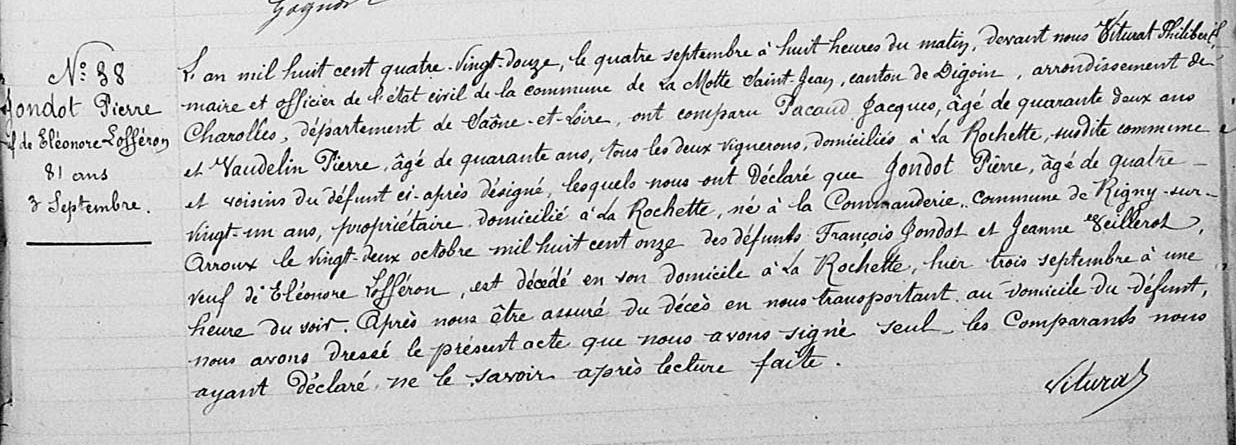 Gognot
N° 38
Jondot Pierre
vf de Eléonore Lofféron
81 ans
3 Septembre.
L'an mil huit cent quatre-vingt-douze, le quatre septembre à huit heures du matin, devant nous Viturat Philibert,
maire et officier de l'état civil de la commune de La Motte Saint-Jean, canton de Digoin, arrondissement de
Charolles, département de Saône-et-Loire, ont comparu Pacaud Jacques, âgé de quarante deux ans
et Vaudelin Pierre, âgé de quarante ans, tous les deux vignerons, domiciliés à La Rochette, susdite commune
et voisins du défunt ci-après désigné, lesquels nous ont déclaré que Jondot Pierre, âgé de quatre-
vingt-un ans, propriétaire, domicilié à La Rochette, né à la Commanderie, commune de Rigny-sur-
Arroux le vingt-deux octobre mil huit cent onze des défunts François Jondot et Jeanne Veillerot,
veuf de Eléonore Lofféron, est décédé en son domicile à La Rochette, hier trois septembre à une
heure du soir. Après nous être assuré du décès en nous transportant au domicile du défunt,
nous avons dressé le présent acte que nous avons signé seul, les Comparants nous
ayant déclaré ne le savoir après lecture faite.
Viturat